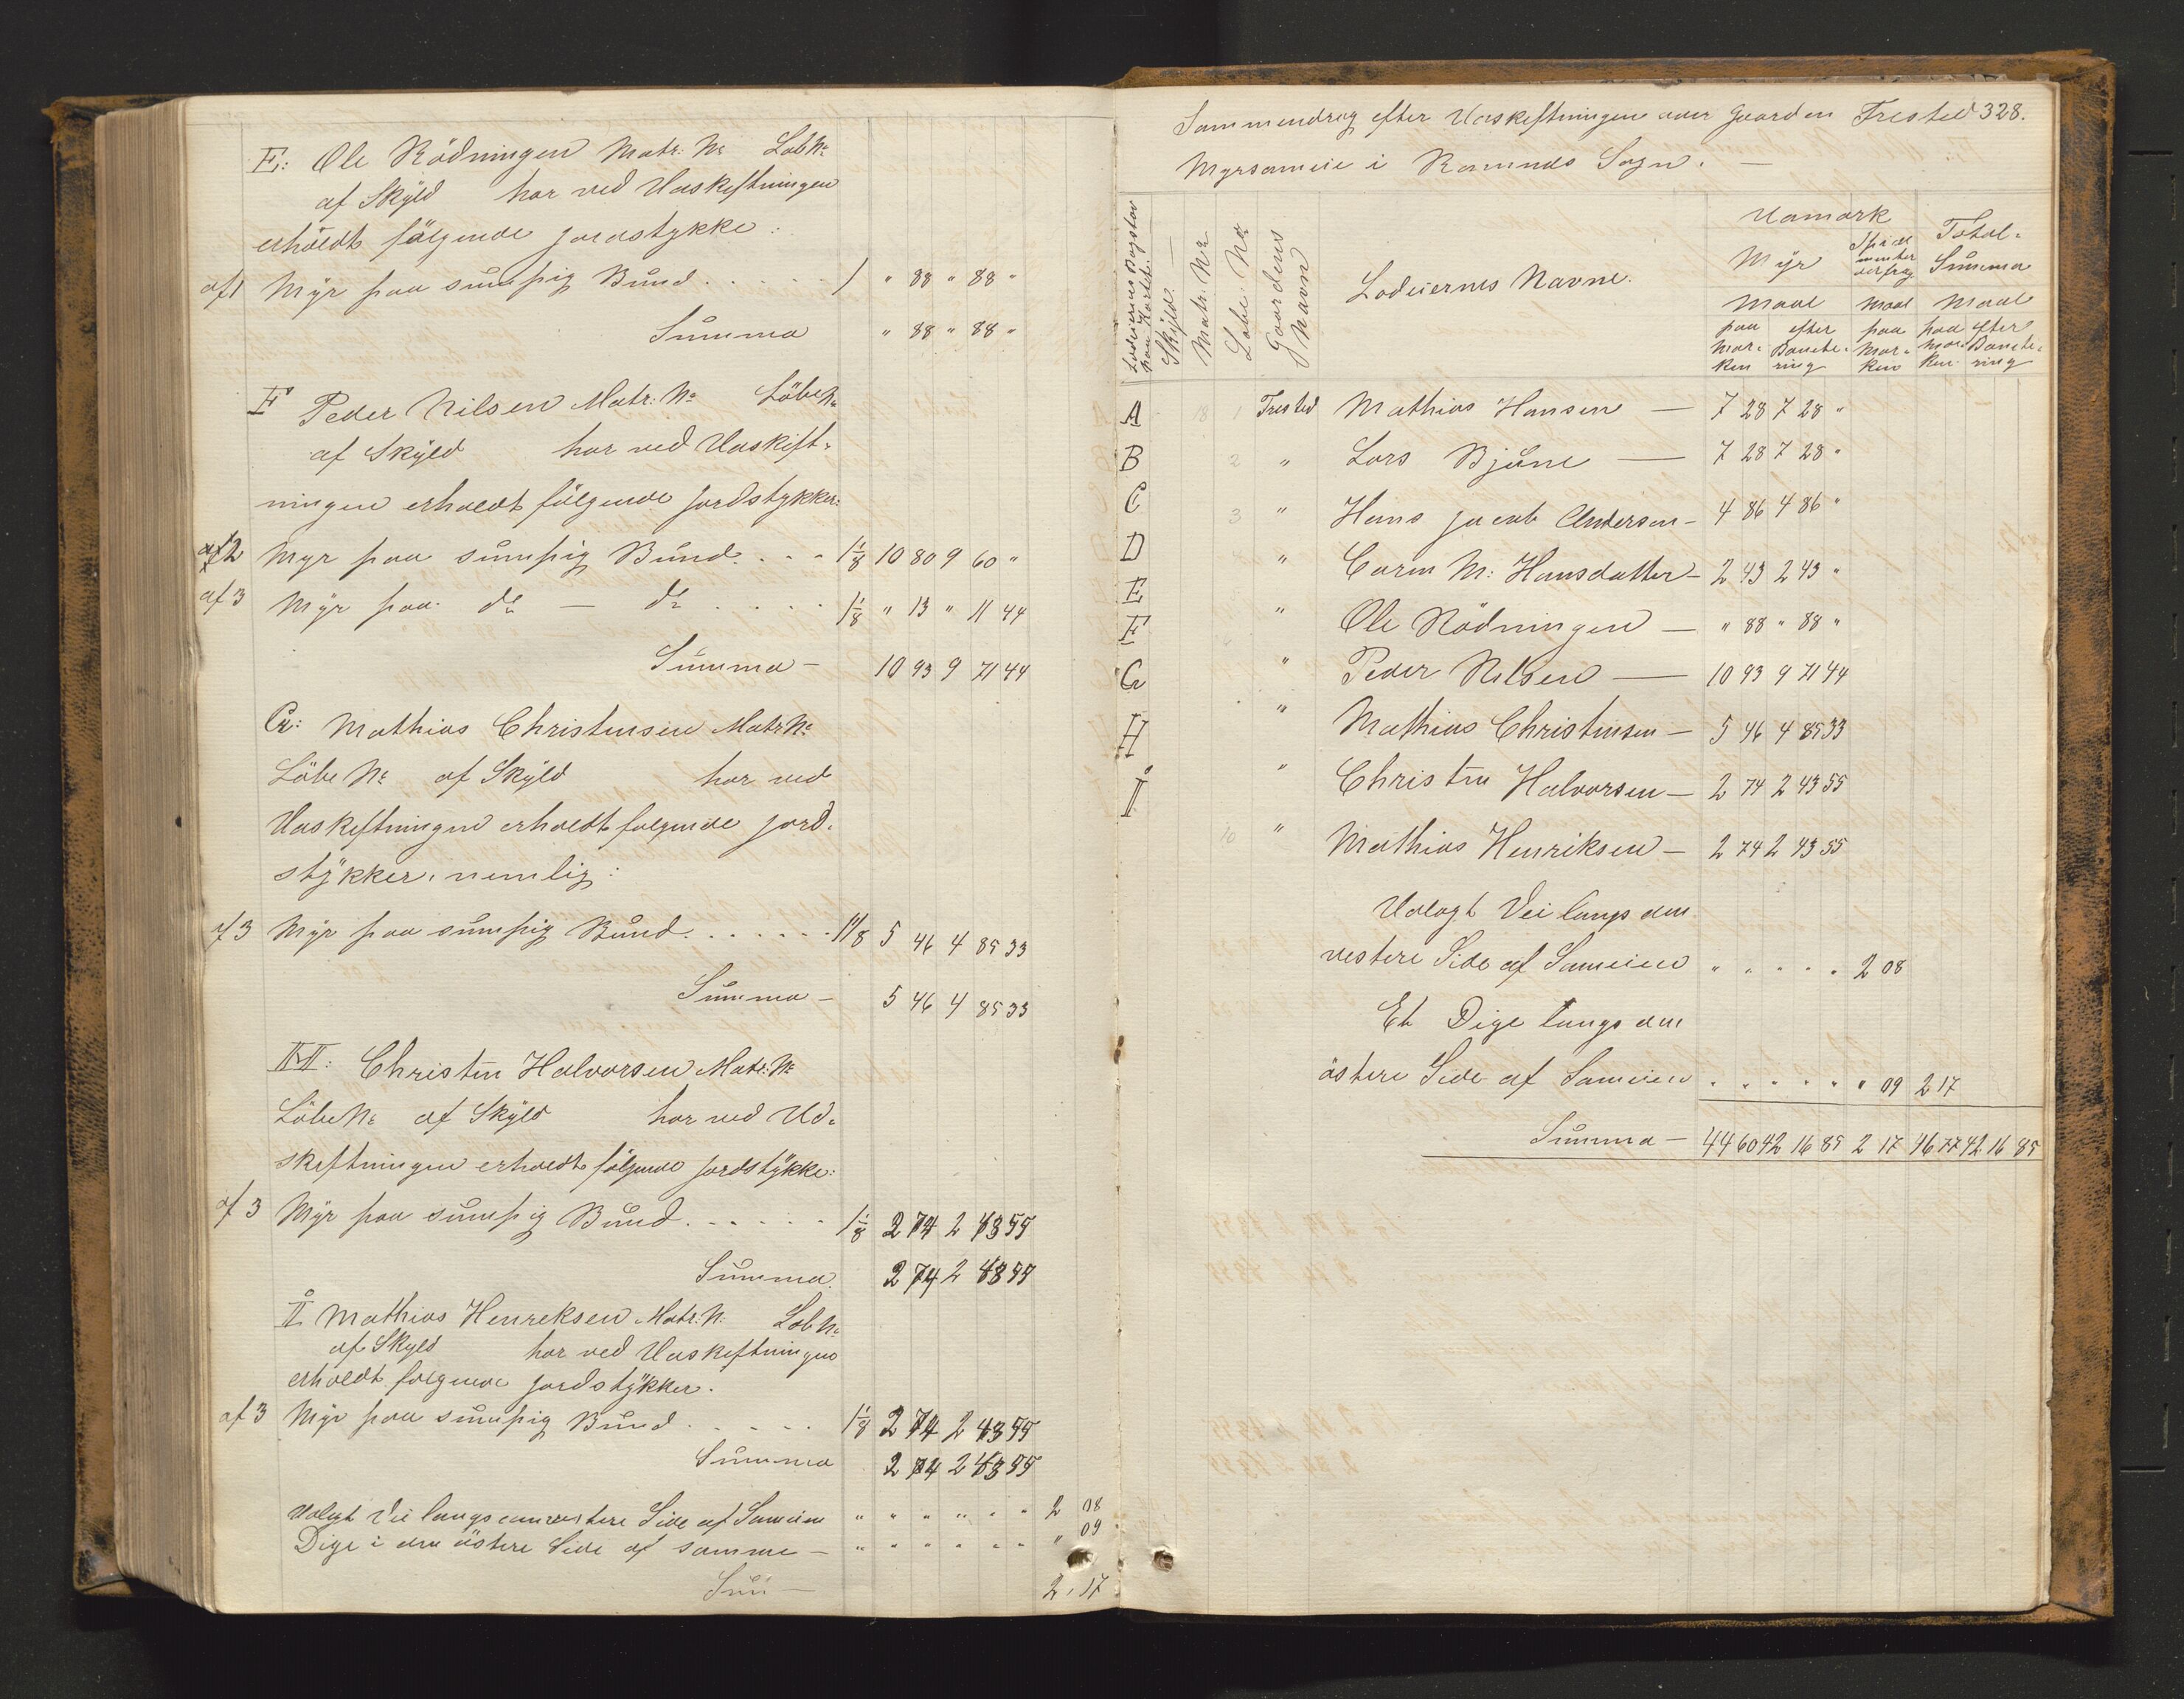 E: Ole Rödningen Matr: No Löb No
af Skÿld har ved Udskiftningen
erholdt följende Jordstykke:
af 1 Mÿr paa sumpig Bund . . . . . 1 " 88 " 88 "
Summa " 88 " 88 "
F Peder Nilsen Matr: No Löbe No
af Skÿld har ved Udskift-
ningen erholdt fölgende Jordstykker:
af 2 Myr paa sumpig Bund . . . 1 1/8 10 80 9 60 "
af 3 Mÿr paa do — do . . . . 1 1/8 " 13 " 11 44
Summa — 10 93 9 71 44
G: Mathias Christensen Matr No
Löbe No af Skÿld har ved
Udskiftningen erholdt følgende Jord-
stÿkker, nemlig:
af 3 Mÿr paa sumpig Bund . . . . . . 1 1/8 5 46 4 85 33
Summa — 5 46 4 85 33
H: Christen Halvorsen Matr: No
Löbe No af Skÿld har ved Ud-
skiftningen erholdt følgende Jordstÿkke:
af 3 Mÿr paa sumpig Bund . . . . . . 1 1/8 2 74 2 43 55
Summa 2 74 2 43 55
I Mathias Henreksen Matr: N: Löb No
af Skyld har ved Udskiftningen
erholdt følgende Jordstÿkker.
af 3 Mÿr paa sumpig Bund . . . . . 1 1/8 2 74 2 43 55
Summa 2 74 2 43 55
Udlagt Vei langs den vestere Side af Sameien " " " " " " 2 08
Dige i den östere Side af samme — " " " " " " " 09
Sum — 2 , 17
Sammendrag efter Udskiftningen over Gaarden Trested 328.
Myrsameie i Ramnæs Sogn. —
Lodeiernes Bogstav paa Kartet.
Skÿld.
Matr. No
Löbe. No
Gaardens Navn
Lodeiernes Navne.
Udmark
Mÿr
Total-
Summa
Maal Maal Maal
paa Mar- ken efter Bonite- ring paa Mar- ken paa Mar- ken efter Bonite- ring
A 18 1 Trested Mathias Hansen — 7 28 7 28 "
B 2 " Lars Bjune — 7 28 7 28 "
C 3 " Hans Jacob Andersen — 4 86 4 86 "
D " Caren M: Hansdatter — 2 43 2 43 "
E " Ole Rödningen — " 88 " 88 "
F " Peder Nilsen — 10 93 9 71 44
G " Mathias Christensen — 5 46 4 85 33
H " Christen Halvorsen — 2 74 2 43 55
I 10 " Mathias Henriksen — 2 74 2 43 55
Udlagt Vei langs den
vestere Side af Sameien " " " " " 2 08
Et Dige langs den
östere Side af Sameien " " " " " " 09 2 17
Summa — 44 60 42 16 85 2 17 46 77 42 16 85